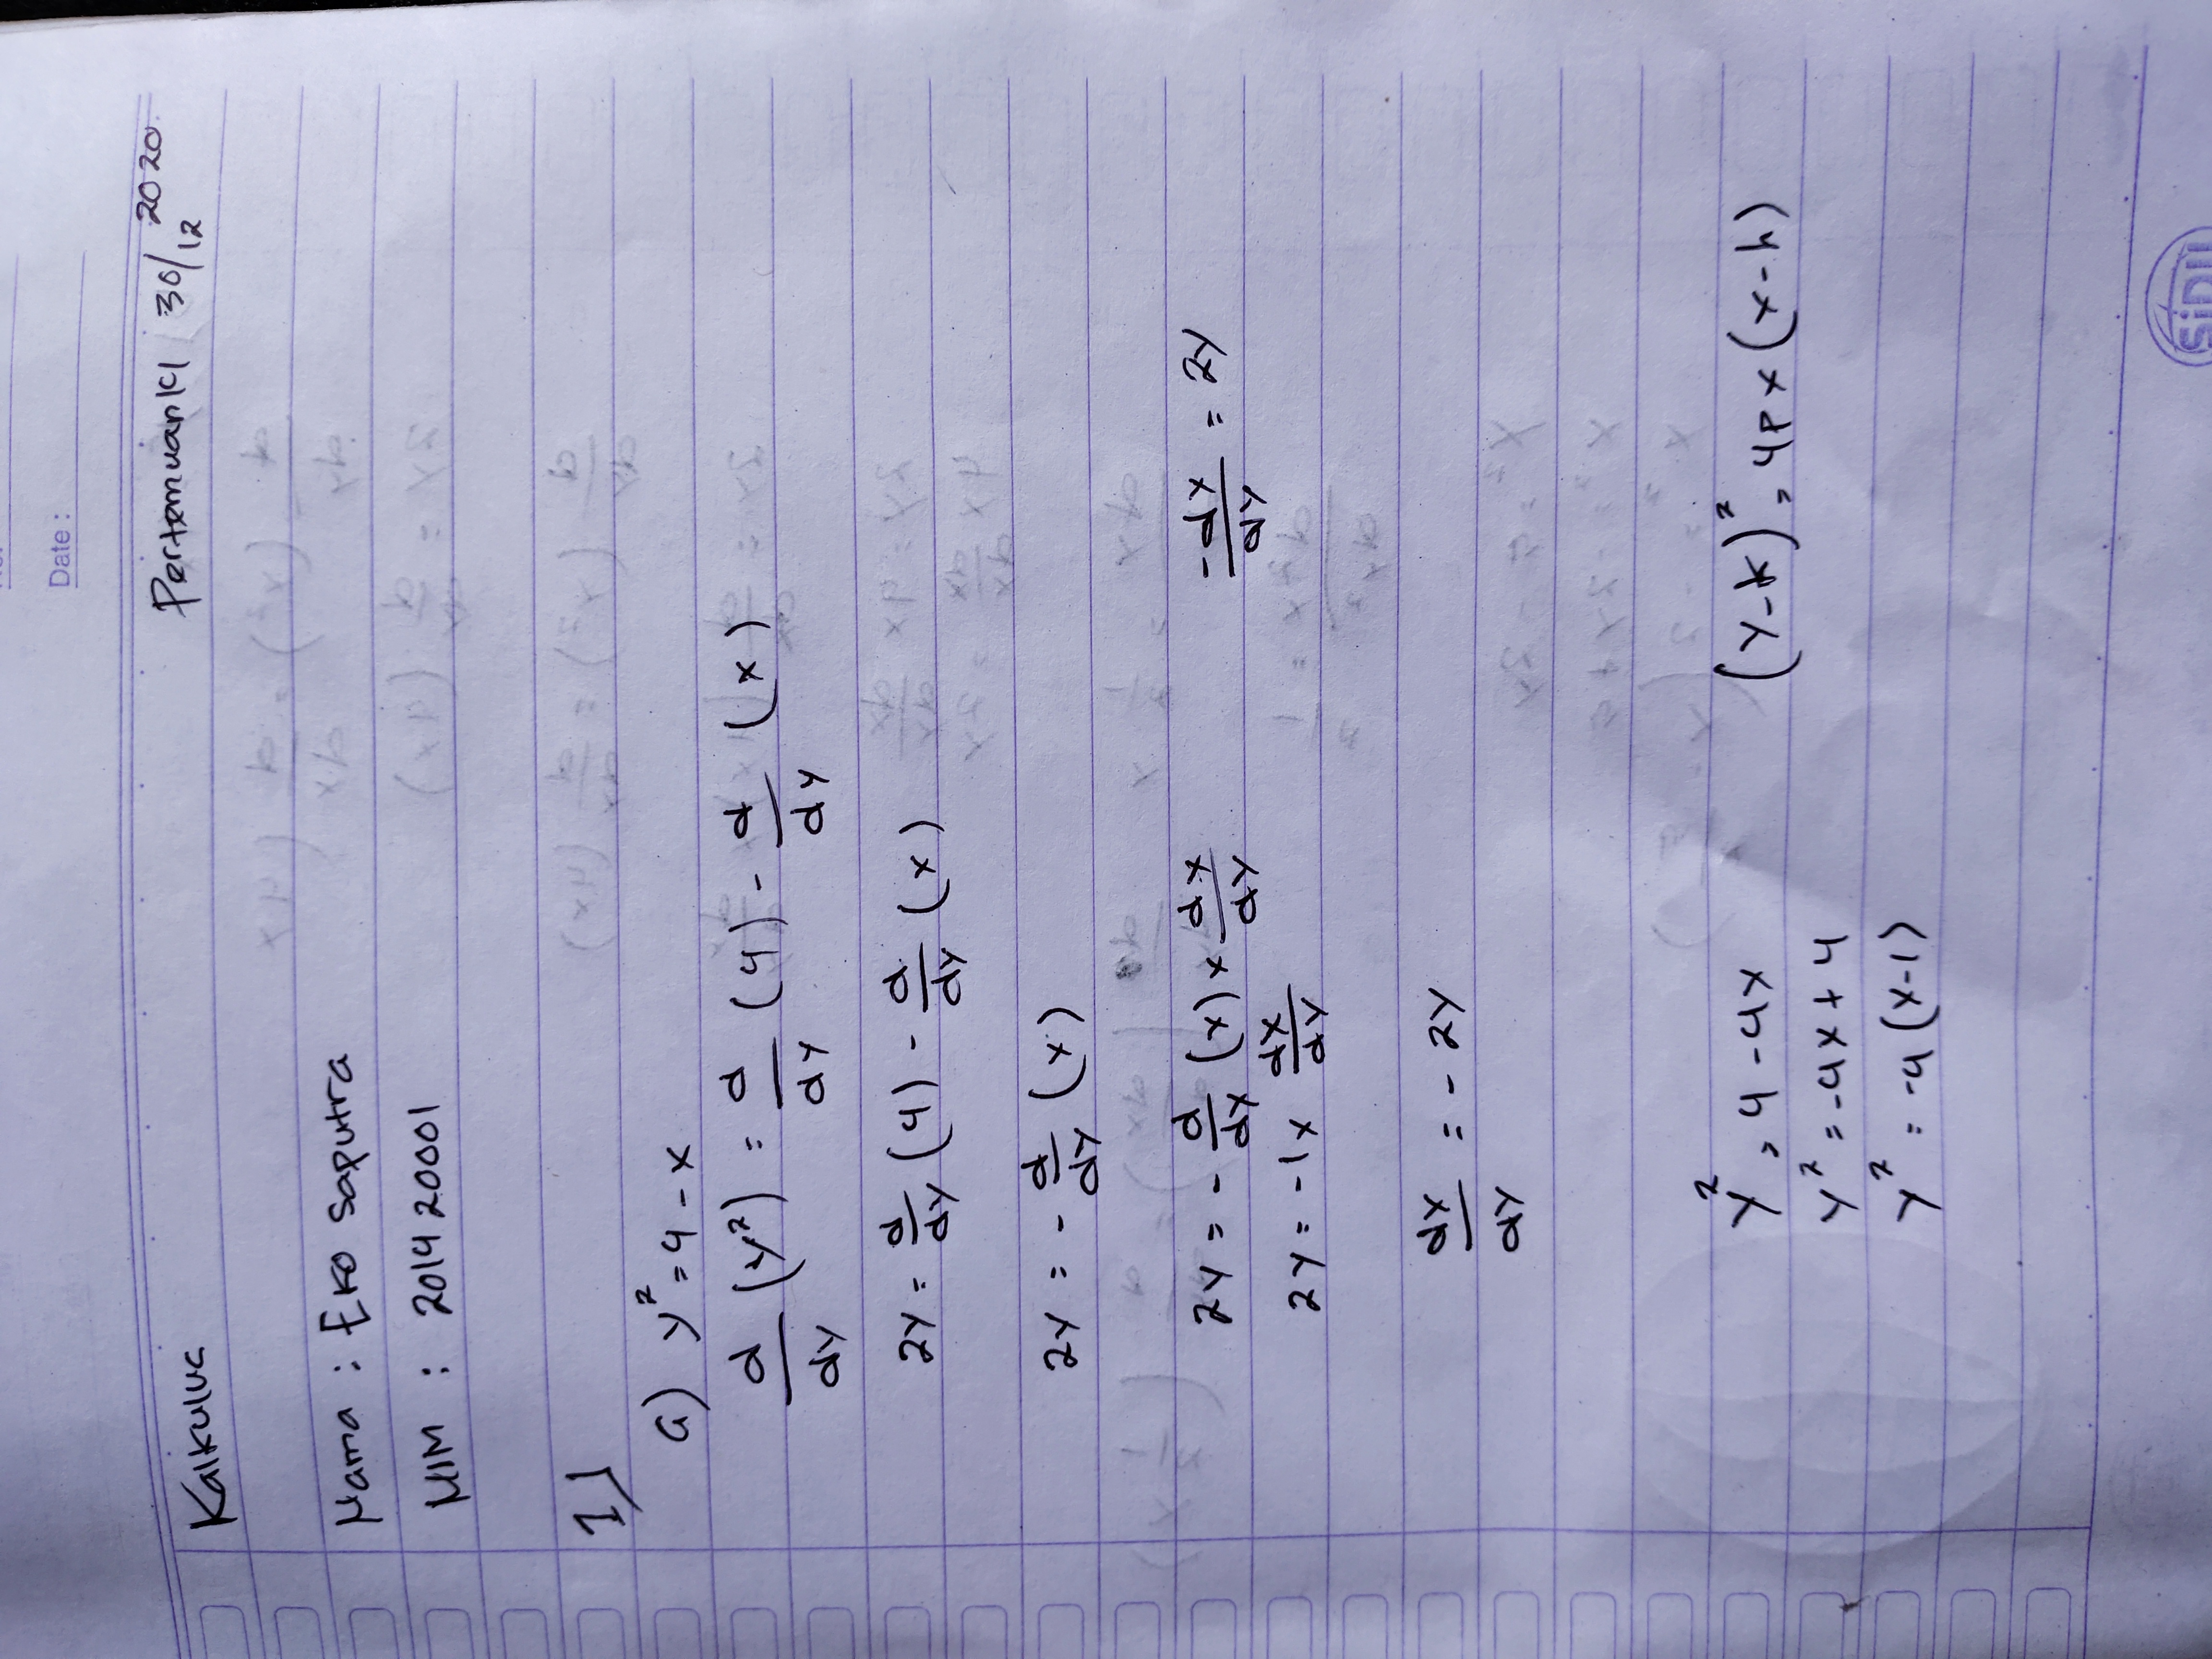 Date :
Kalkulus
Pertemuan 30/12 2020
Nama : Eko Saputra
NIM : 201420001
1)
a) y² = 4 - x
d/dy (y²) = d/dy (4) - d/dy (x)
2y = d/dy (4) - d/dy (x)
2y = - d/dy (x)
2y = - d/dx (x) × dx/dy
-dx/dy = 2y
2y = -1 × dx/dy
dx/dy = - 2y
y² = 4 - 4x
(y-k)² = 4p × (x-h)
y² = -4x + 4
y² = -4 (x-1)
SiDU